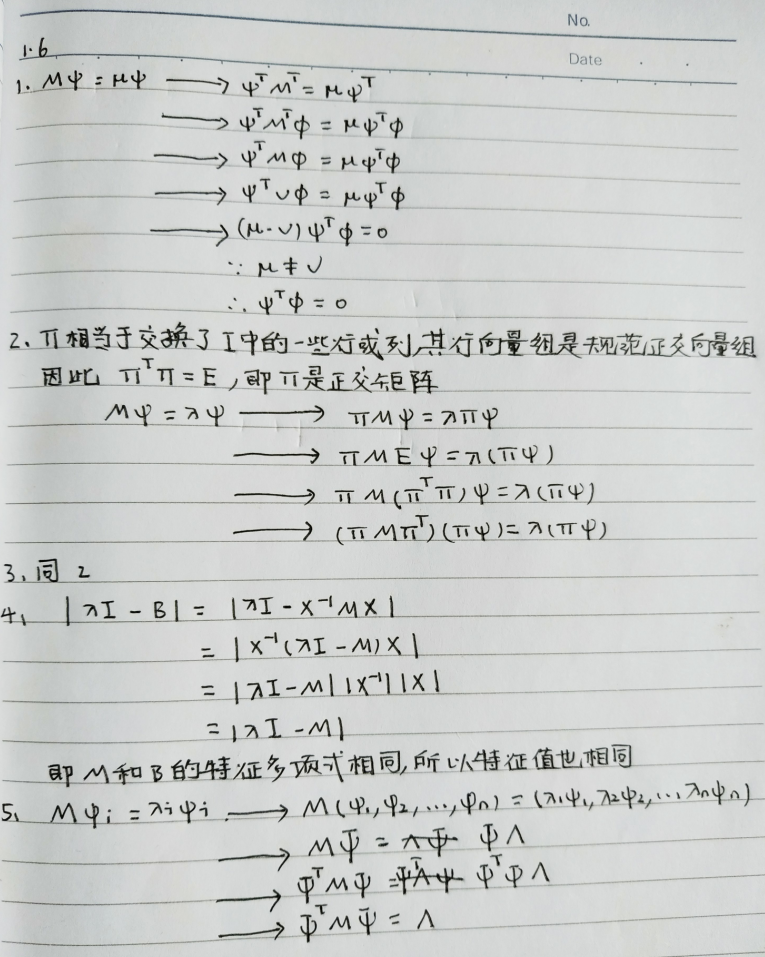 No.
1.6
Date
1. Mψ = μψ ⟶ ψᵀMᵀ = μψᵀ
⟶ ψᵀMᵀφ = μψᵀφ
⟶ ψᵀMφ = μψᵀφ
⟶ ψᵀνφ = μψᵀφ
⟶ (μ-ν)ψᵀφ = 0
∵ μ ≠ ν
∴ ψᵀφ = 0
2. Π相当于交换了I中的一些行或列,其行向量组是规范正交向量组
因此 ΠᵀΠ = E, 即Π是正交矩阵
Mψ = λψ ⟶ ΠMψ = λΠψ
⟶ ΠMEψ = λ(Πψ)
⟶ ΠM(ΠᵀΠ)ψ = λ(Πψ)
⟶ (ΠMΠᵀ)(Πψ) = λ(Πψ)
3. 同 2
4. |λI - B| = |λI - X⁻¹MX|
= |X⁻¹(λI - M)X|
= |λI - M||X⁻¹||X|
= |λI - M|
即M和B的特征多项式相同,所以特征值也相同
5. Mψᵢ = λᵢψᵢ ⟶ M(ψ₁,ψ₂,...,ψₙ) = (λ₁ψ₁,λ₂ψ₂,...λₙψₙ)
⟶ MΨ = ΨΛ
⟶ ΨᵀMΨ = ΨᵀΨΛ
⟶ ΨᵀMΨ = Λ